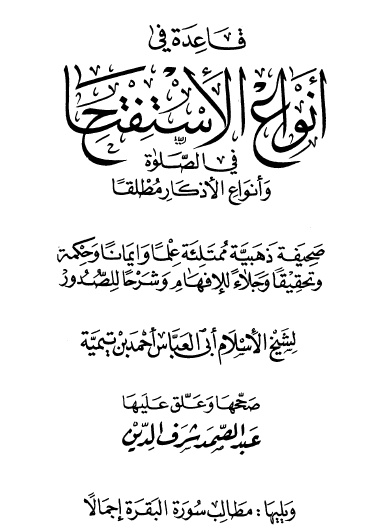 قاعدة في
أنواع الأستفتاح
في الصلاة
وأنواع الأذكار مطلقا
صحيفة ذهبية ممتلئة علما وايمانا وحكمة
وتحقيقا وجلاء للإفهام وشرحا للصدور
لشيخ الأسلام أبي العباس أحمد بن تيمية
صححها وعلق عليها
عبد الصمد شرف الدين
ويليها: مطالب سورة البقرة إجمالا